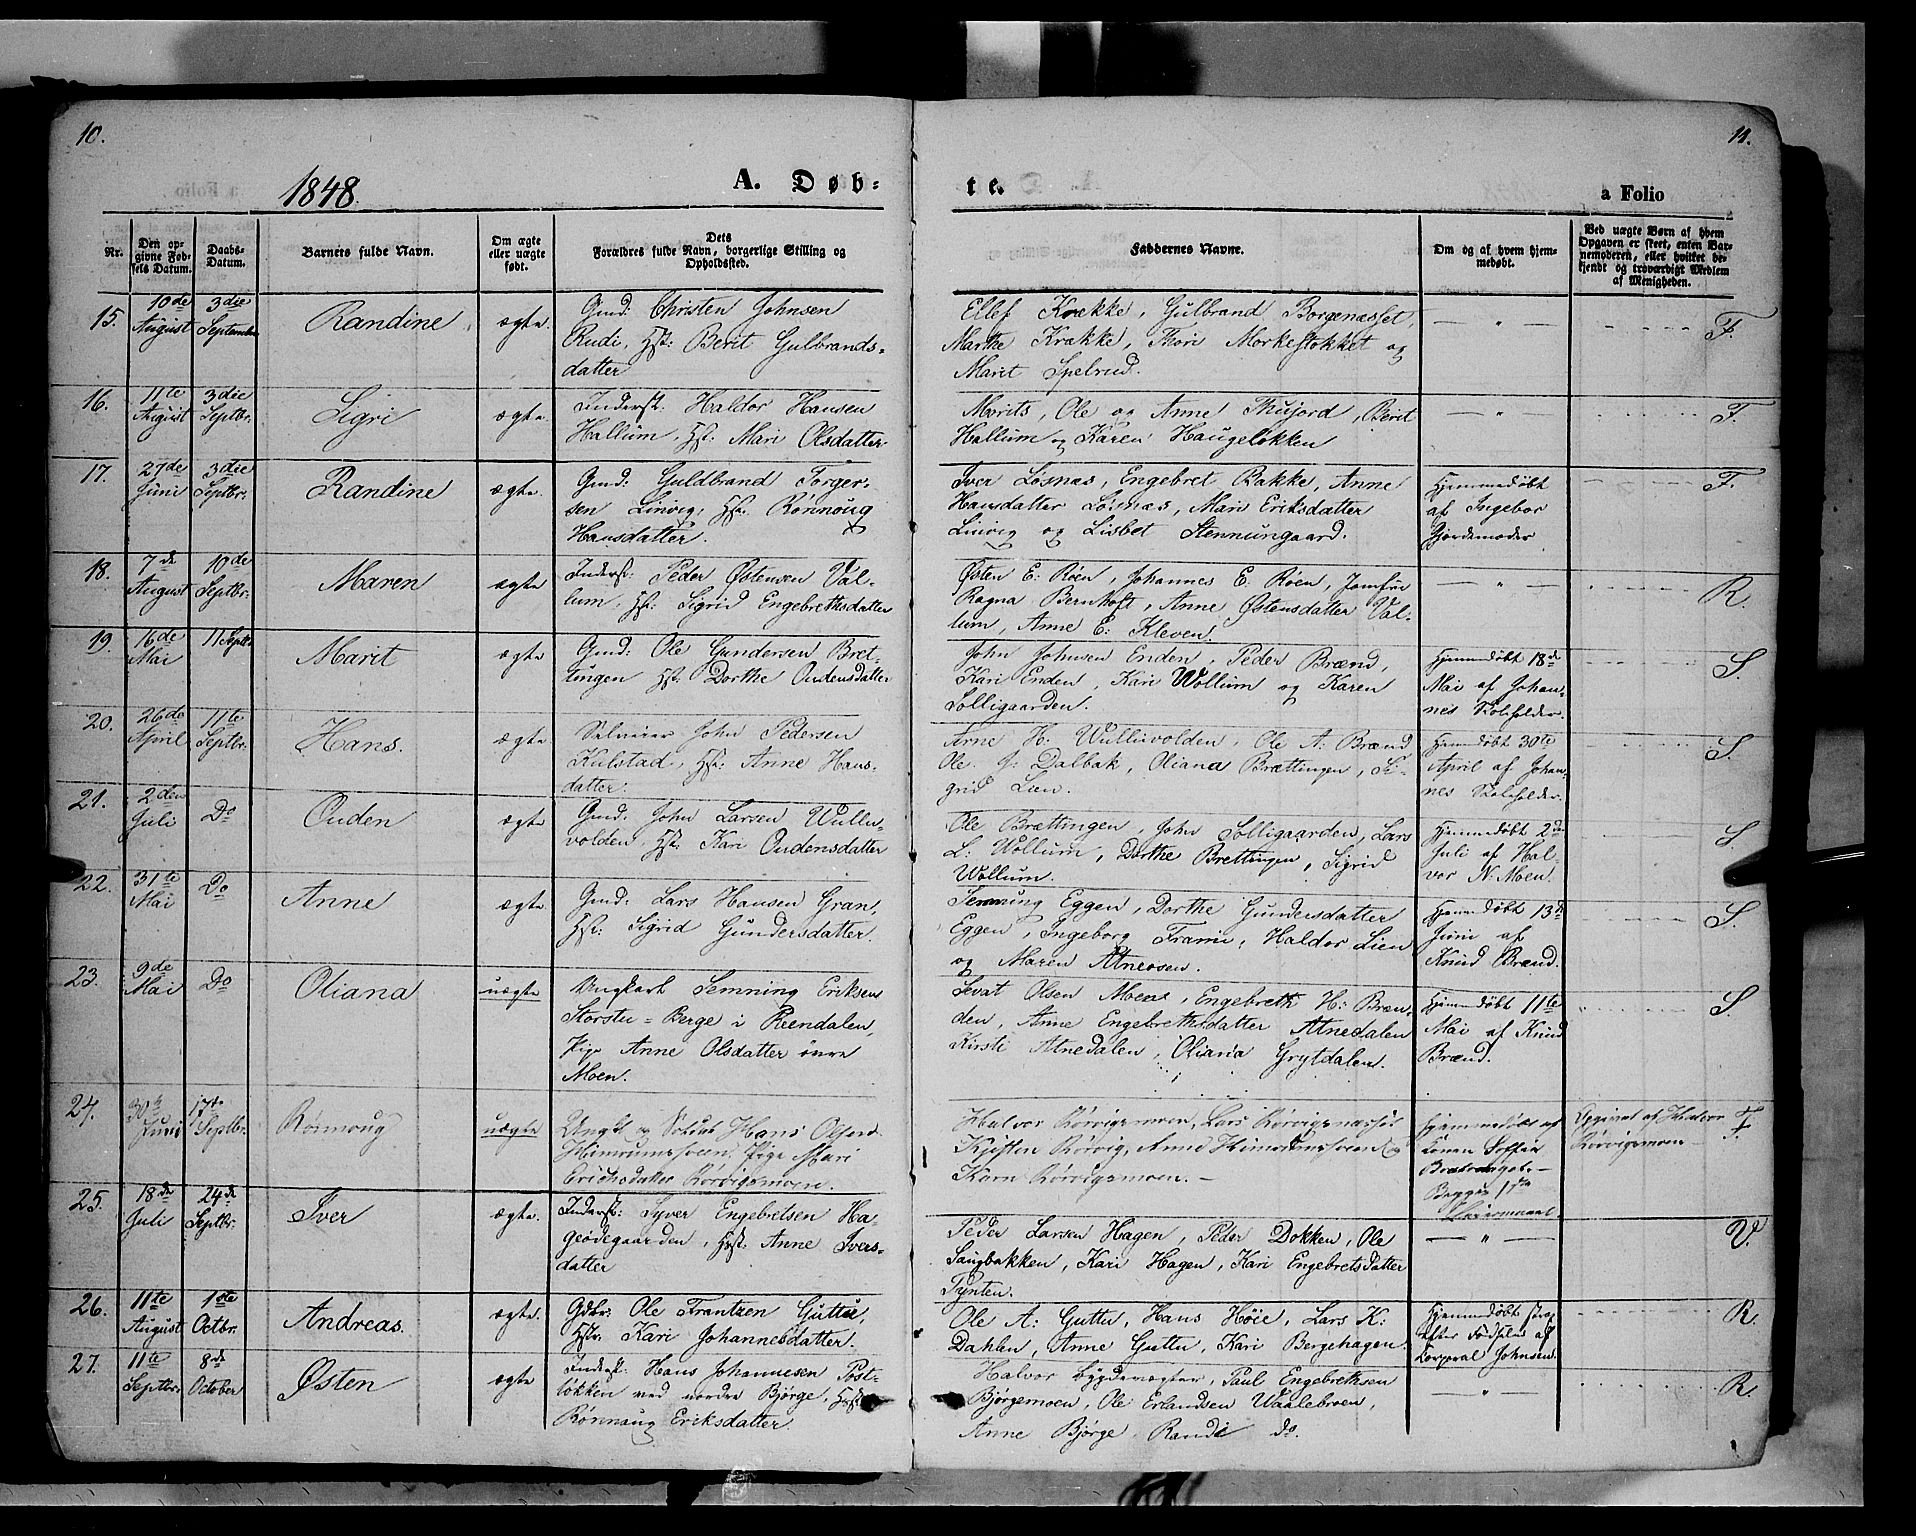 10.
11.
1848.
A. Døb-
te.
a Folio
Nr.
Den op-
givne Fød-
sels Datum.
Daabs-
Datum.
Barnets fulde Navn.
Om ægte
eller uægte
født.
Dets
Forældres fulde Navn, borgerlige Stilling og
Opholdssted.
Faddernes Navne.
Om og af hvem hjem-
medøbt.
Ved uægte Børn af hvem
Opgaven er skeet, enten Bar-
nemoderen, eller hvilket be-
kjendt og troværdigt Medlem
af Menigheden.
15.
10de
August
3die
September
Randine
ægte.
Gmd: Christen Johnsen
Rudi, Hst: Berit Gulbrands-
datter
Ellef Krække, Gulbrand Borgenæsset,
Marthe Krække, Thori Morkestokket og
Marit Spelrud.
F.
16.
11te
August
3die
Septbr.
Sigri
ægte.
Inderst: Haldor Hansen
Hallum, Hst: Mari Olsdatter
Morits, Ole og Anne Thujord, Berit
Hallum og Karen Haugeløkken
F.
17.
27de
Juni
3die
Septbr.
Randine
ægte.
Gmd: Guldbrand Torger-
sen Linvig, Hst: Rønnoug
Hansdatter.
Iver Losnæs, Engebret Bakke, Anne
Hansdatter Losnæs, Mari Eriksdatter
Linvig og Lisbet Stennungaard.
Hjemmedøbt
af Ingebor
Gjordemoder
F.
18.
7de
August
10de
Septbr.
Maren
ægte
Inderst: Peder Østensen Val-
lum, Hst: Sigrid Engebrethsdatter
Østen E: Røen, Johannes E. Røen, Jomfru
Ragna Bernhoft, Anne Østensdatter Val-
lum, Anne E: Kleven.
R.
19.
16de
Mai
11 Septbr.
Marit
ægte
Gmd: Ole Gundersen Bret-
tingen Hst: Dorthe Oudensdatter
John Johnsen Enden, Peder Brænd,
Kari Enden, Kari Wollum og Karen
Solligaarden.
Hjemmedøbt 18de
Mai af Johan-
nes Skoleholder.
S.
20.
26de
April
11te
Septbr.
Hans.
ægte
Selveier John Pedersen
Kulstad, Hst: Anne Hans-
datter.
Arne H: Wulluvolden, Ole A: Brænd
Ole J: Dalbak, Oliana Brættingen, Si-
grid Lien.
Hjemmedøbt 30te
April af Johan-
nes Skoleholder.
S.
21.
2den
Juli
Do
Ouden
ægte
Gmd: John Larsen Wullu-
volden, Hst: Kari Oudensdatter
Ole Brættingen, John Solligaarden, Lars
L: Wollum, Dorthe Brettingen, Sigrid
Wollum.
Hjemmedøbt 2de
Juli af Hal-
vor N: Moen.
S.
22.
31te
Mai
Do
Anne
ægte.
Gmd: Lars Hansen Gran,
Hst: Sigrid Gundersdatter.
Semming Eggen, Dorthe Gundersdatter
Eggen, Ingeborg Frami, Haldor Lien
og Maren Atneosen.
Hjemmedøbt 13de
Juni af
Knud Brænd.
S.
23.
9de
Mai
Do
Oliana
uægte
Ungkarl Semning Eriksen
Storstu-Berge i Reendalen,
Pige Anne Olsdatter øvre
Moen.
Sevat Olsen Moen, Engebreth H: Bræn-
den, Anne Engebrethsdatter Atnedalen
Kirsti Atnedalen, Oliana Grytdalen.
Hjemmedøbt 11te
Mai af Knud
Brænd.
S.
24.
30te
Juni
17de
Septbr.
Rønnoug
uægte
Ungkl og Soldat Hans Olsen
Himrumssveen, Pige Mari
Erichsdatter Rørvigsmoen.
Halvor Rørvigsmoen, Lars Rørvigsnæsset
Kjisten Rørvig, Anne Himrumssveen og
Karn Rørvigsmoen.
Hjemmedøbt af
Konen Soffia
Begges 1ste
Leiermaal.
Opgivet af Halvor
Rørvigsmoen
F.
25.
18de
Juli
24de
Septbr.
Iver
ægte.
Inderst: Syver Engebretsen Ha-
geødegaarden, Hst: Anne Ivers-
datter
Peder Larsen Hagen, Peder Dokken, Ole
Saugbakken, Kari Hagen, Kari Engebretsdatter
Tynten.
V.
26.
11te
August
1ste
Octbr.
Andreas.
ægte.
Gdbr: Ole Frantzen Guttu,
Hst: Kari Johannesdatter.
Ole A: Guttu, Hans Høie, Lars K:
Dahlen, Anne Guttu, Kari Bergehagen.
Hjemmedøbt strax
efter Fødselen af
Corporal Johnsen.
R.
27.
11te
Septbr.
8de
October
Østen
ægte
Inderst: Hans Johannesen Post-
løkken med nordre Bjørge, Hst:
Rønnaug Eriksdatter.
Halvor Bygdevægter, Paul Engebrethsen
Bjørgemoen, Ole Erlandsen Waalebroen,
Anne Bjørge, Randi do.
R.